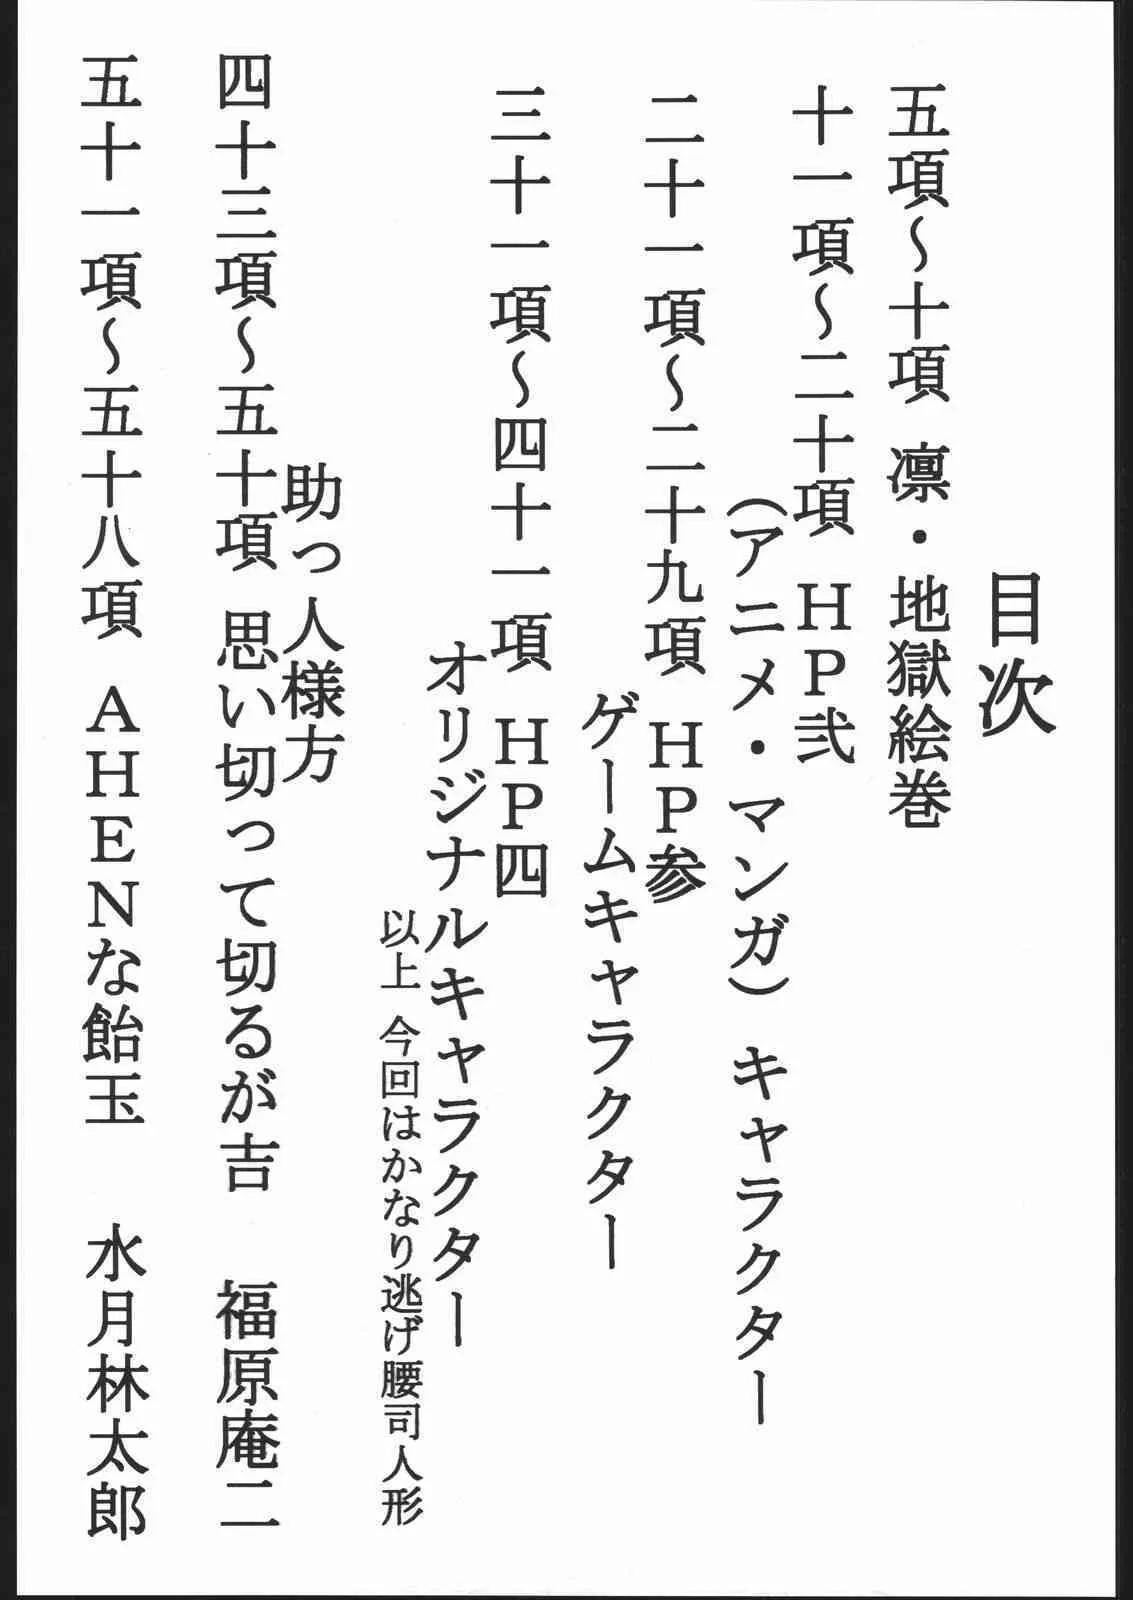 目次
五項～十項 凛・地獄絵巻
十一項～二十項 HP弐
（アニメ・マンガ）キャラクター
二十一項～二十九項 HP参
ゲームキャラクター
三十一項～四十一項 HP四
オリジナルキャラクター
以上 今回はかなり逃げ腰司人形
助っ人様方
四十三項～五十項 思い切って切るが吉 福原庵二
五十一項～五十八項 AHENな飴玉 水月林太郎